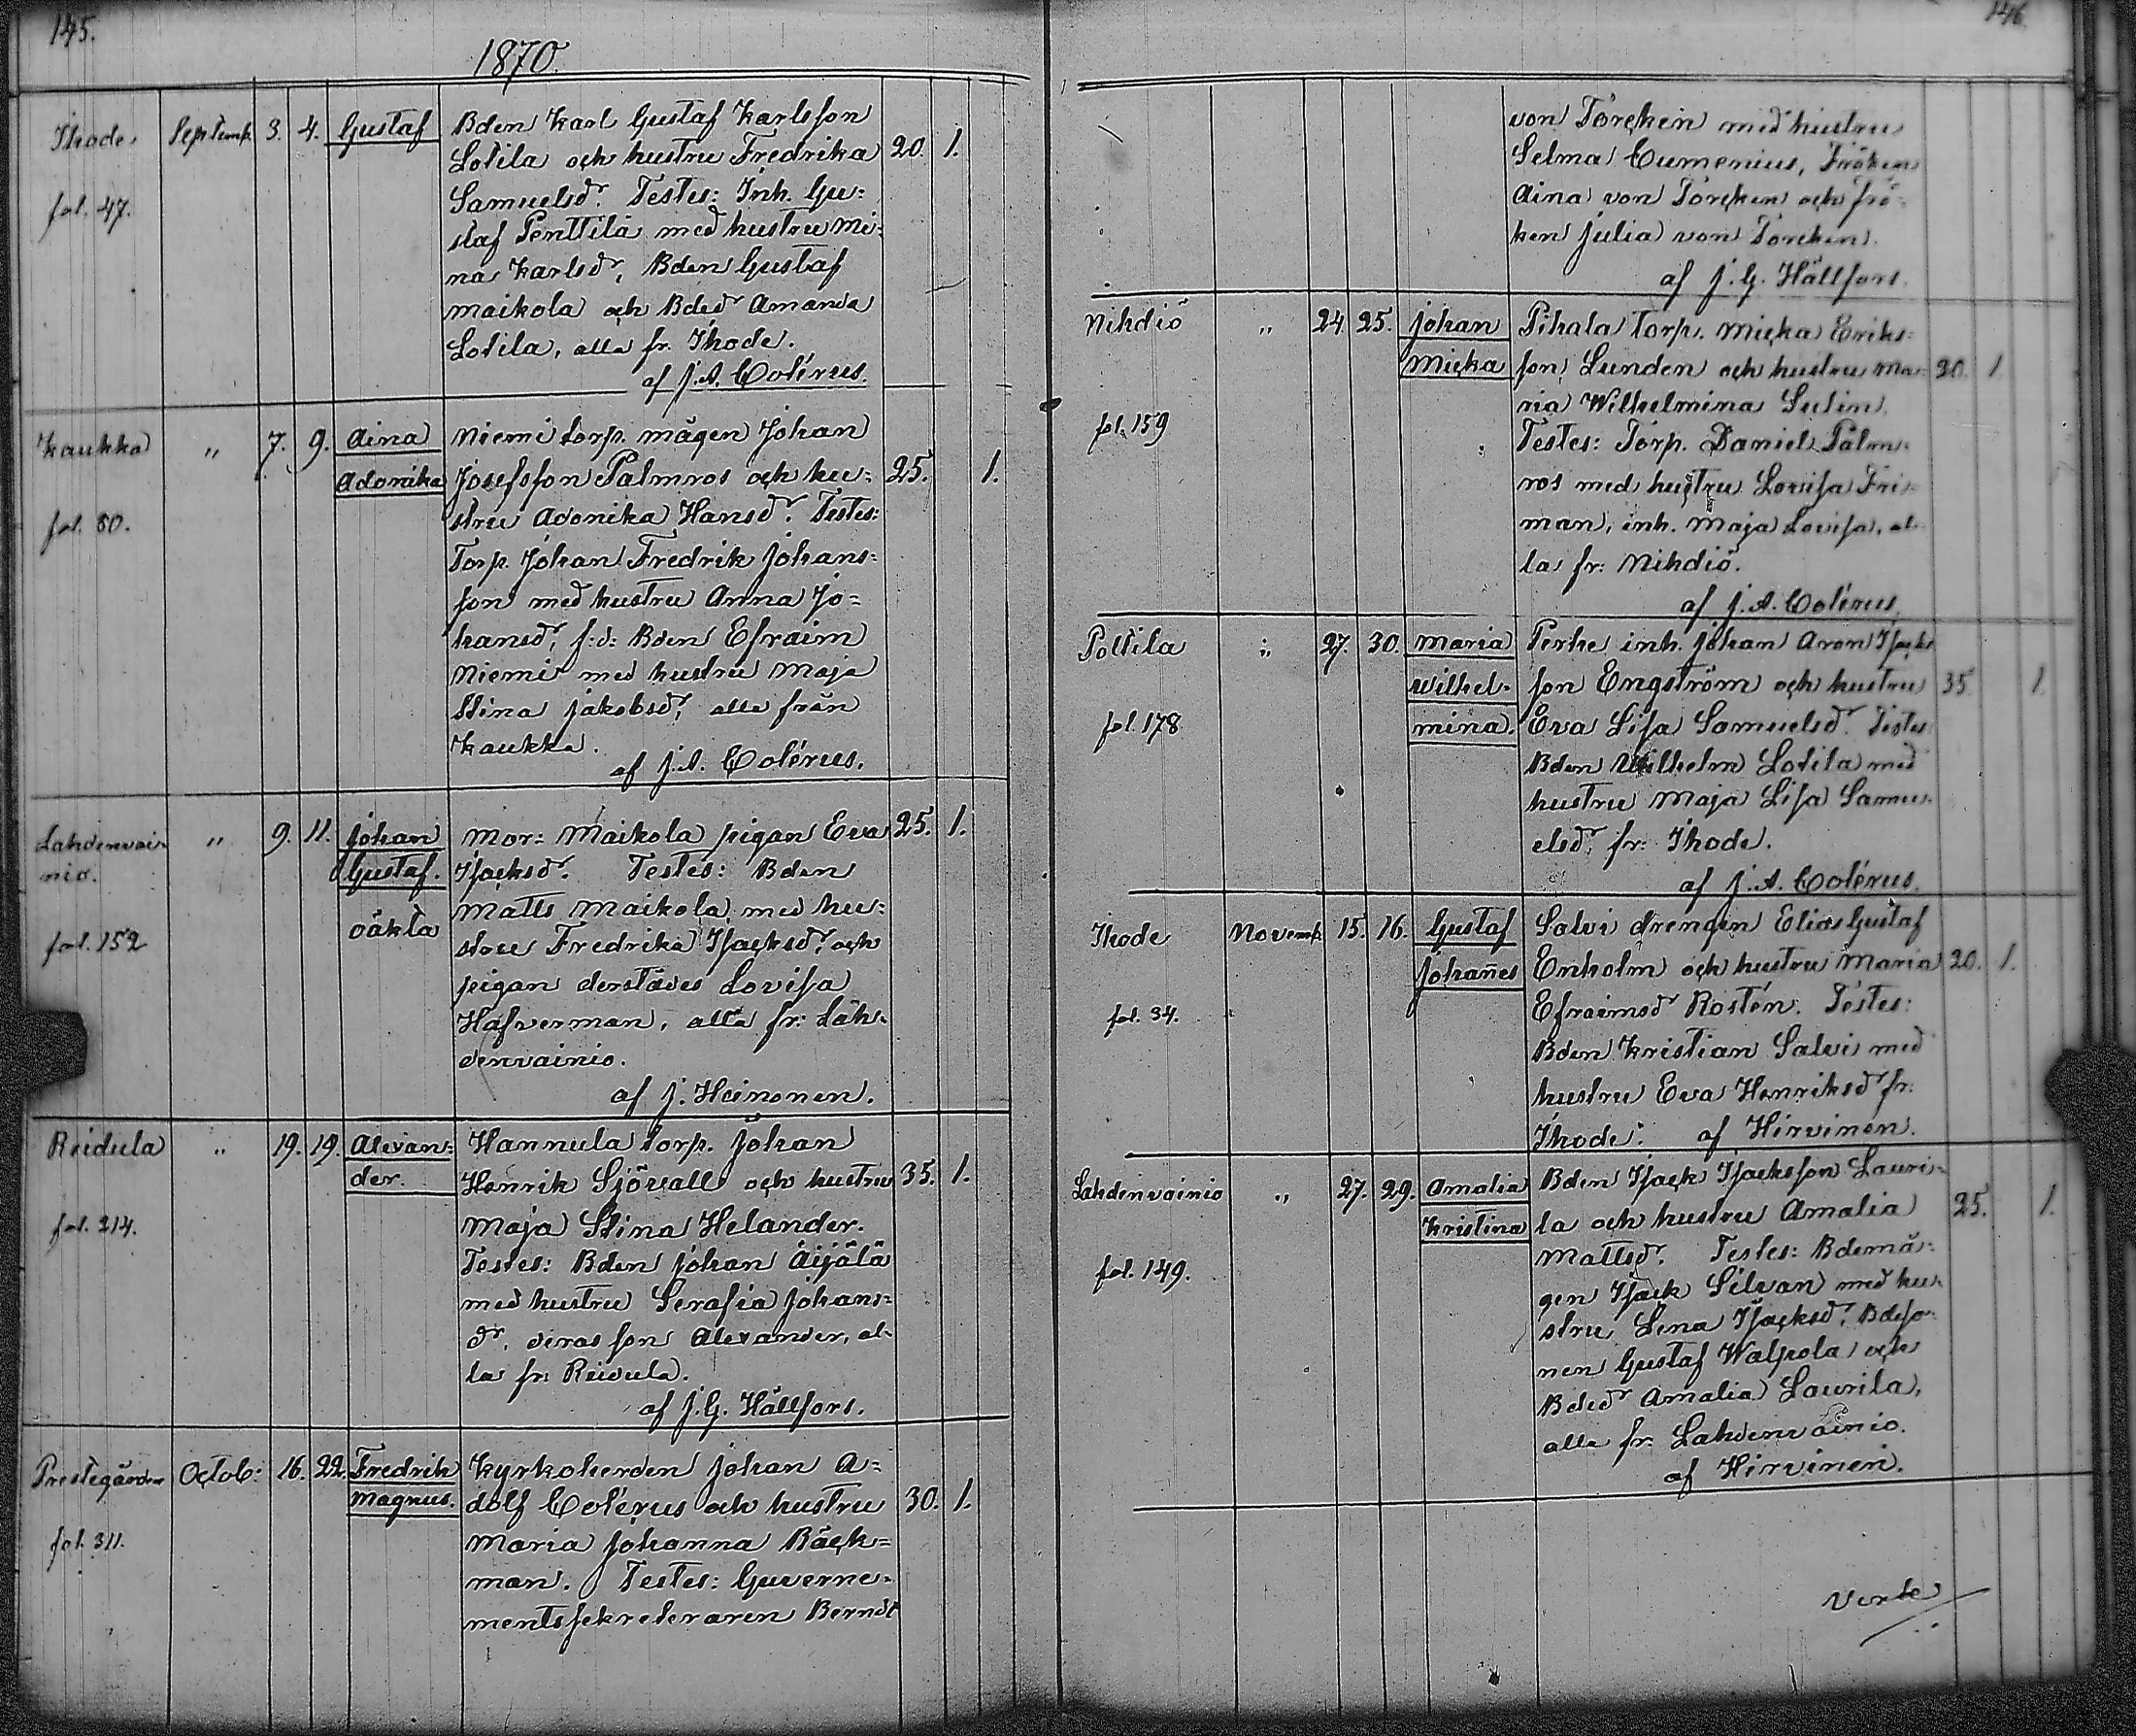 145.
1870.
Ihode Septemb. 3. 4. Gustaf Bden Karl Gustaf Karlsson
Lotila och hustru Fredrika 20. 1.
fol. 47. Samuelsdr. Testes: Inh. Gu=
staf Penttilä med hustru Mi=
na Karlsdr, Bden Gustaf
Maikola och Bdedr Amanda
Lotila, alla fr. Ihode.
af J. A. Colérus.
Kaukka " 7. 9. Aina Niemi torp. mågen Johan
Adonika Josefsson Palmros och hu= 25. 1.
fol. 80. stru Adonika Hansdr. Testes:
Torp. Johan Fredrik Johans=
son med hustru Anna Jo=
hansdr, f:d: Bden Efraim
Niemi med hustru Maja
Stina Jakobsdr, alla från
Kaukka.
af J. A. Colérus.
Lahdenvai= " 9. 11. Johan Mor: Maikola pigan Eva 25. 1.
nio. Gustaf. Isacksdr. Testes: Bden
oäkta Matts Maikola med hu=
fol. 152 stru Fredrika Isacksdr och
pigan derstädes Lovisa
Hafverman, alla fr: Lah=
denvainio.
af J. Heinonen.
Reidula " 19. 19. Alexan= Hannula torp. Johan
der. Henrik Sjövall och hustru 35. 1.
fol. 214. Maja Stina Helander.
Testes: Bden Johan Äijälä
med hustru Serafia Johans=
dr, deras son Alexander, al=
la fr: Reidula.
af J. G. Hällfors.
Prestegården Octob: 16. 22. Fredrik Kyrkoherden Johan A=
Magnus. dolf Colérus och hustru 30. 1.
fol. 311. Maria Johanna Bäck=
man. Testes: Guverne=
mentssekreteraren Berndt
146.
von Törcken med hustru
Selma Cumenius, Fröken
Aina von Törcken och frö=
ken Julia von Törcken.
af J. G. Hällfors.
Nihdiö " 24 25. Johan Pihala torp. Micka Eriks=
Micka son Lunden och hustru Ma= 20. 1
ria Wilhelmina Sulin.
fol. 159 Testes: Torp. Daniel Palm=
ros med hustru Lovisa Fri=
man, inh. Maja Lovisa, al=
la fr: Nihdiö.
af J. A. Colérus.
Poltila " 27. 30. Maria Perhe inh. Johan Aron Isacks
wilhel= son Engström och hustru 35 1.
fol. 178 mina. Eva Lisa Samuelsdr. Testes
Bden Wilhelm Lotila med
hustru Maja Lisa Samu=
elsdr, fr: Ihode.
af J. A. Colérus.
Ihode Novemb. 15. 16. Gustaf Salvi drengen Elias Gustaf
Johañes Enholm och hustru Maria 20. 1.
fol. 34. Efraimsdr Rostén. Testes:
Bden Kristian Salvi med
hustru Eva Henriksdr fr:
Ihode. af Hirvinen.
Lahdenvainio " 27. 29. Amalia Bden Isack Isacksson Lauri=
Kristina la och hustru Amalia 25. 1.
fol. 149. Mattsdr. Testes: Bdemå=
gen Isack Silvan med hu=
stru Lena Isacksdr, Bdeso=
nen Gustaf Walpola och
Bdedr Amalia Laurila,
alla fr: Lahdenvainio.
af Hirvinen.
Verte